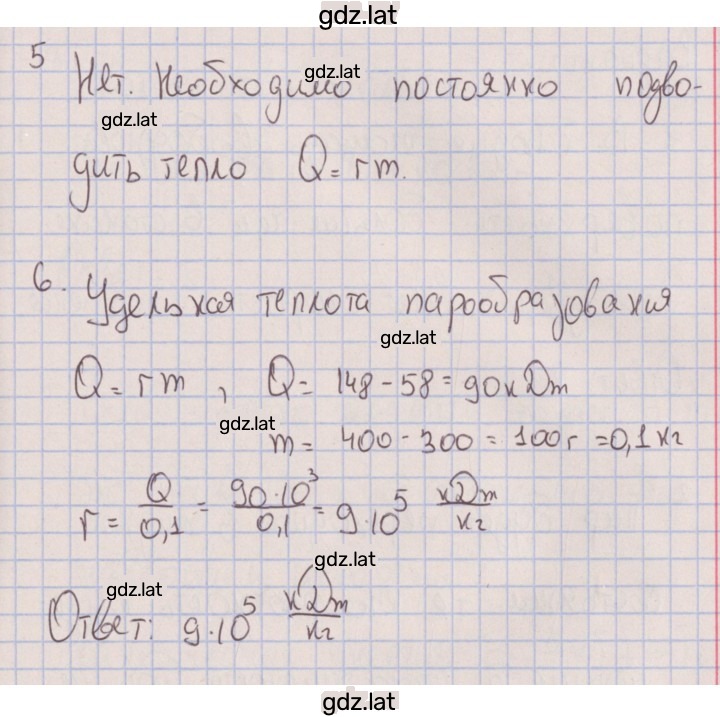 gdz.lat
5
Нет. Необходимо постоянно подво-
gdz.lat
gdz.lat
дить тепло Q = rm.
6. Удельная теплота парообразования
gdz.lat
Q = rm , Q = 148 - 58 = 90 кДж
gdz.lat
m = 400 - 300 = 100 г = 0,1 кг
r = Q/0,1 = 90·10³/0,1 = 9·10⁵ кДж/кг
gdz.lat
gdz.lat
Ответ: 9·10⁵ кДж/кг
gdz.lat